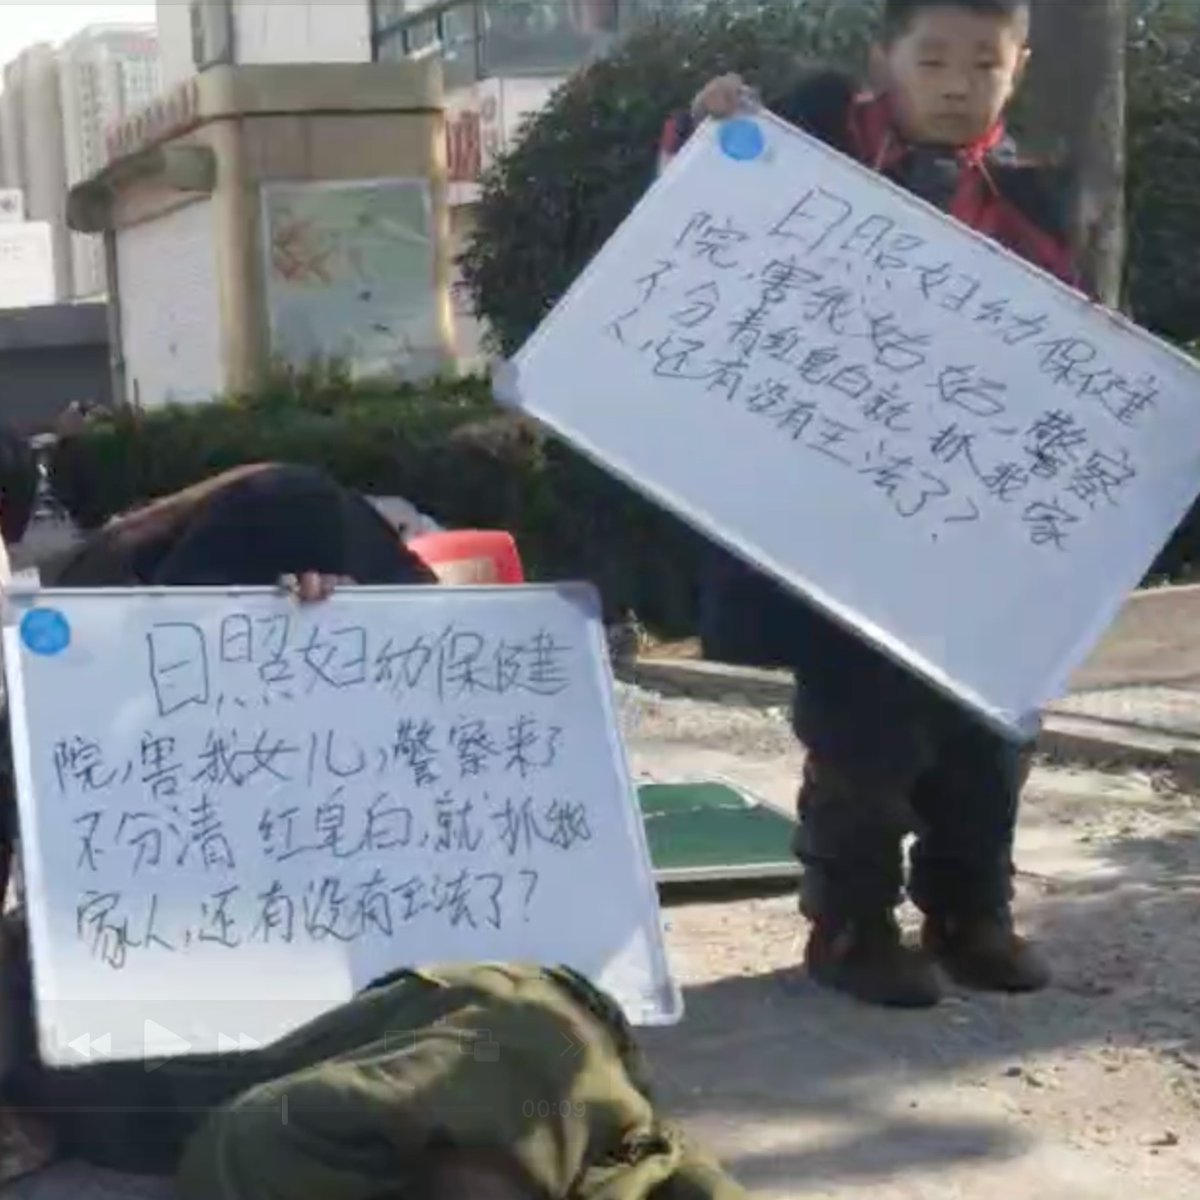 日照妇幼保健
院,害我姑姑,警察
不分青红皂白就抓我家
人,还有没有王法了?
日照妇幼保健
院,害我女儿,警察来了
不分清红皂白,就抓我
家人,还有没有王法了?
00:09